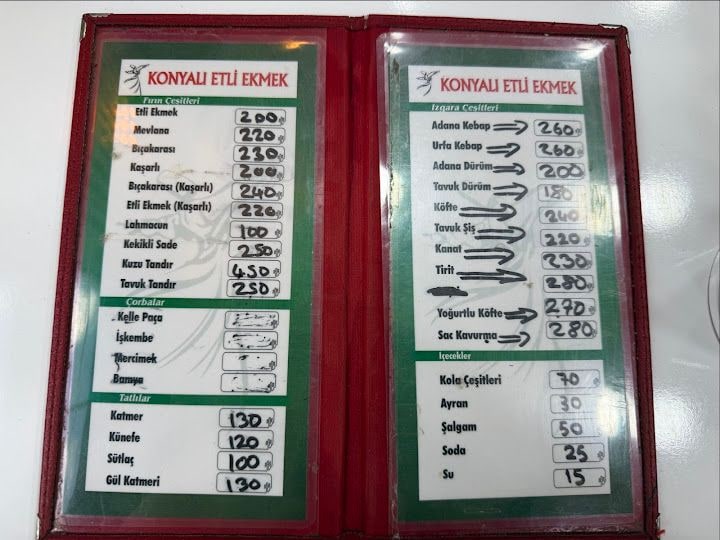 KONYALI ETLİ EKMEK
Fırın Çeşitleri
Etli Ekmek 200
Mevlana 220
Bıçakarası 230
Kaşarlı 200
Bıçakarası (Kaşarlı) 240
Etli Ekmek (Kaşarlı) 220
Lahmacun 100
Kekikli Sade 250
Kuzu Tandır 450
Tavuk Tandır 250
Çorbalar
Kelle Paça
İşkembe
Mercimek
Bamya
Tatlılar
Katmer 130
Künefe 120
Sütlaç 100
Gül Katmeri 130
KONYALI ETLİ EKMEK
Izgara Çeşitleri
Adana Kebap 260
Urfa Kebap 260
Adana Dürüm 200
Tavuk Dürüm 180
Köfte 240
Tavuk Şiş 220
Kanat 230
Tirit 280
Yoğurtlu Köfte 270
Sac Kavurma 280
İçecekler
Kola Çeşitleri 70
Ayran 30
Şalgam 50
Soda 25
Su 15